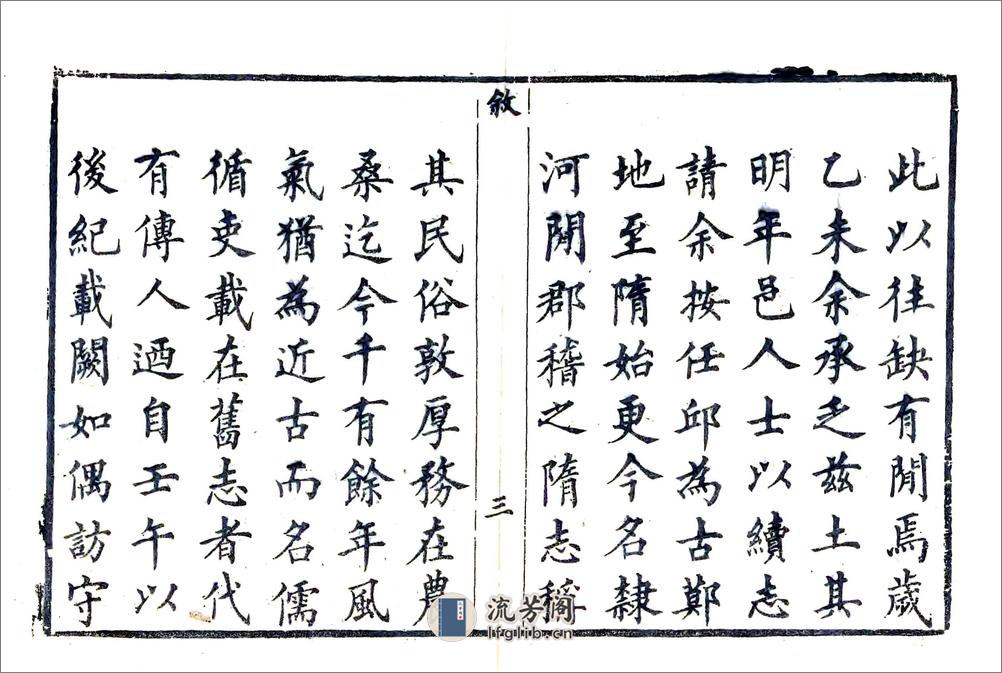 此以往缺有間焉歲
乙未余承乏兹土其
明年邑人士以續志
請余按任邱為古鄚
地至隋始更今名隸
河間郡稽之隋志稱
敘
三
其民俗敦厚務在農
桑迄今千有餘年風
氣猶為近古而名儒
循吏載在舊志者代
有傳人迺自壬午以
後紀載闕如偶訪守
流芳阁
lfglib.cn